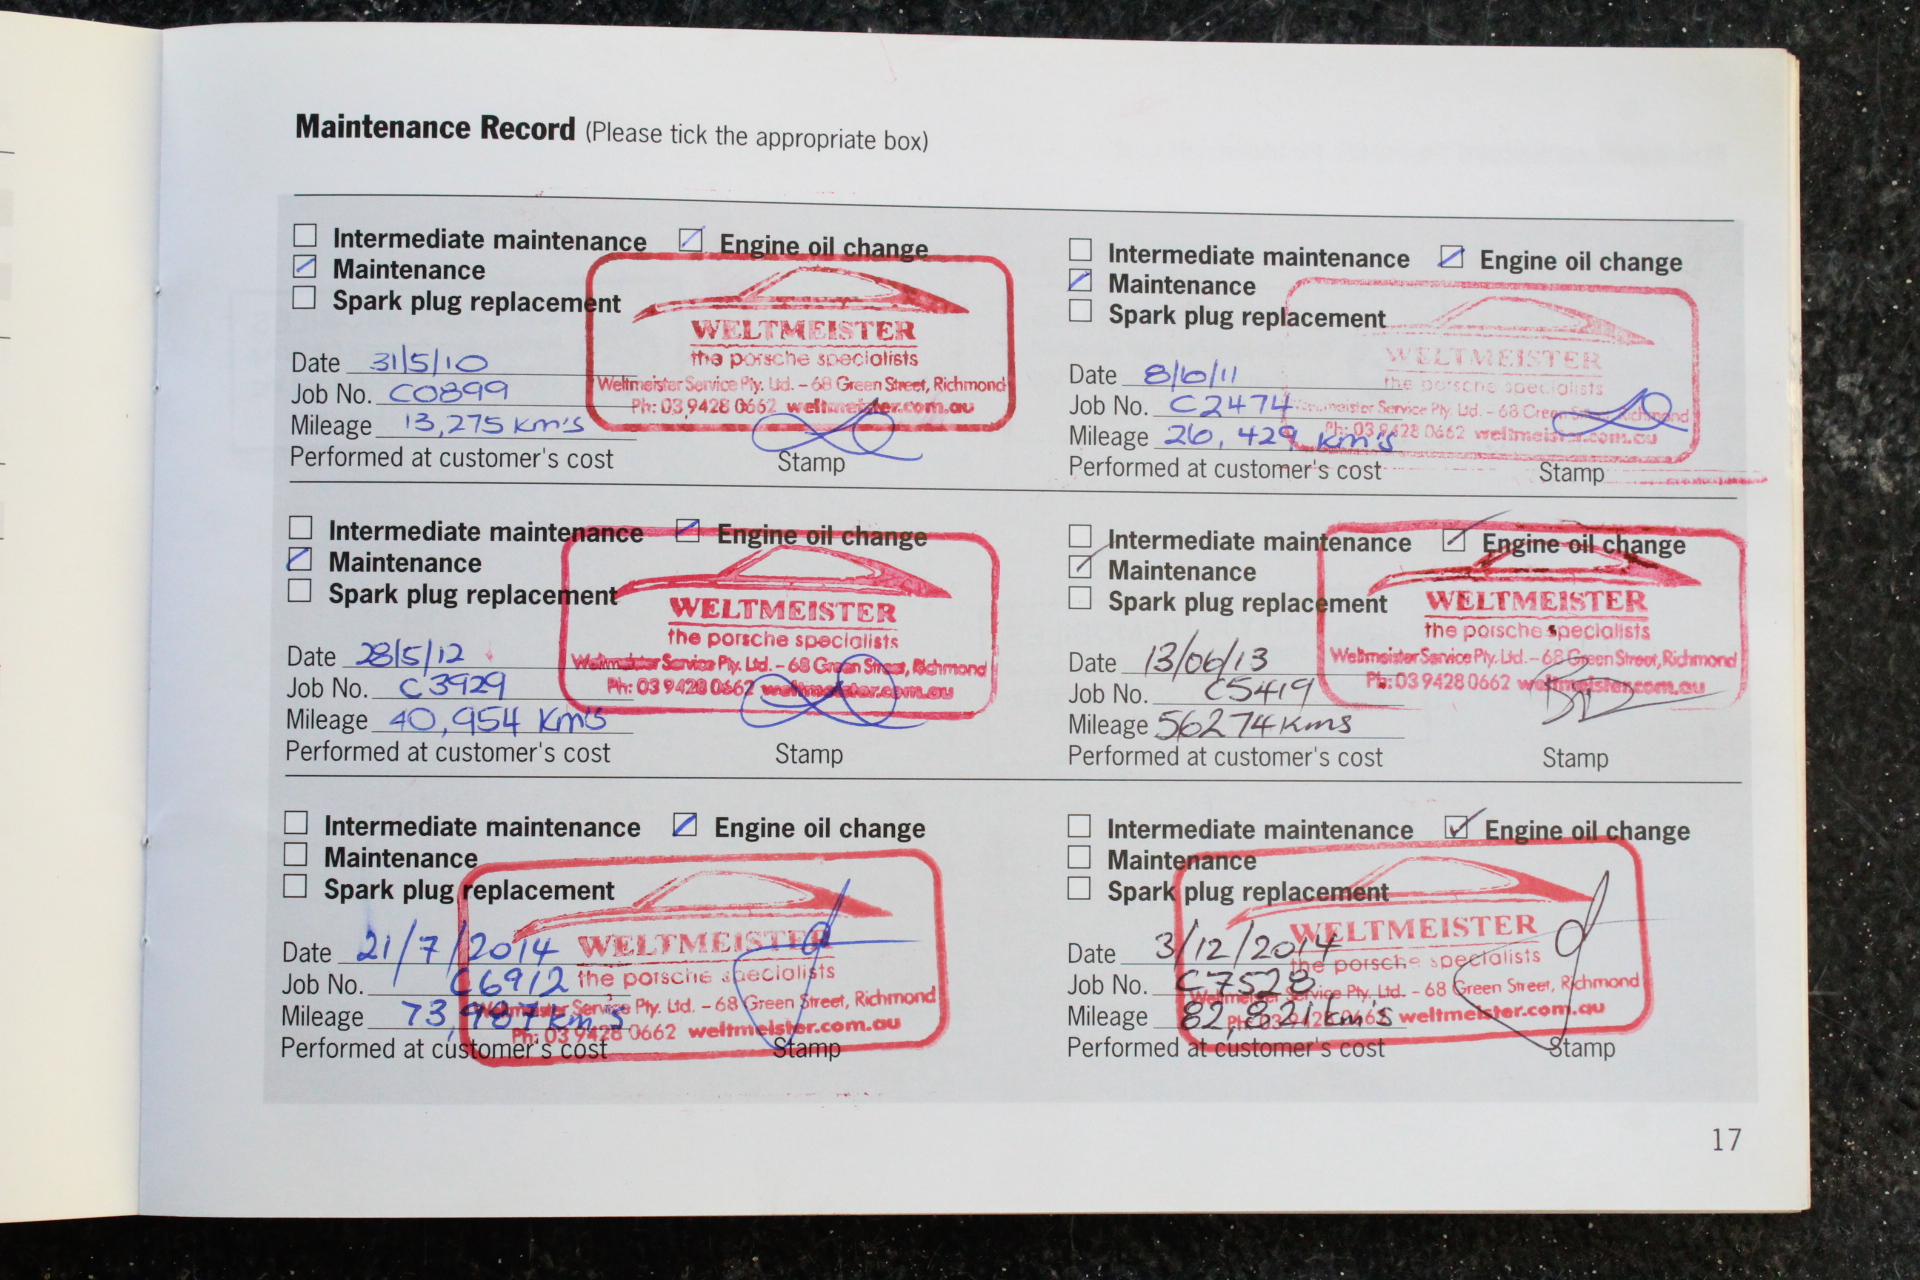 Maintenance Record (Please tick the appropriate box)
Intermediate maintenance Engine oil change
Maintenance
Spark plug replacement
WELTMEISTER
the porsche specialists
Weltmeister Service Pty. Ltd. – 68 Green Street, Richmond
Ph: 03 9428 0662 weltmeister.com.au
Date 31/5/10
Job No. C0899
Mileage 13,275 Km's
Performed at customer's cost Stamp
Intermediate maintenance Engine oil change
Maintenance
Spark plug replacement
WELTMEISTER
the porsche specialists
Weltmeister Service Pty. Ltd. – 68 Green Street, Richmond
Ph: 03 9428 0662 weltmeister.com.au
Date 8/6/11
Job No. C2474
Mileage 26,429 Km's
Performed at customer's cost Stamp
Intermediate maintenance Engine oil change
Maintenance
Spark plug replacement
WELTMEISTER
the porsche specialists
Weltmeister Service Pty. Ltd. – 68 Green Street, Richmond
Ph: 03 9428 0662 weltmeister.com.au
Date 28/5/12
Job No. C3929
Mileage 40,954 Km's
Performed at customer's cost Stamp
Intermediate maintenance Engine oil change
Maintenance
Spark plug replacement
WELTMEISTER
the porsche specialists
Weltmeister Service Pty. Ltd. – 68 Green Street, Richmond
Ph: 03 9428 0662 weltmeister.com.au
Date 13/06/13
Job No. C5419
Mileage 56274 Kms
Performed at customer's cost Stamp
Intermediate maintenance Engine oil change
Maintenance
Spark plug replacement
WELTMEISTER
the porsche specialists
Weltmeister Service Pty. Ltd. – 68 Green Street, Richmond
Ph: 03 9428 0662 weltmeister.com.au
Date 21/7/2014
Job No. C6912
Mileage 73,987 km's
Performed at customer's cost Stamp
Intermediate maintenance Engine oil change
Maintenance
Spark plug replacement
WELTMEISTER
the porsche specialists
Weltmeister Service Pty. Ltd. – 68 Green Street, Richmond
Ph: 03 9428 0662 weltmeister.com.au
Date 3/12/2014
Job No. C7528
Mileage 82,821 km's
Performed at customer's cost Stamp
17